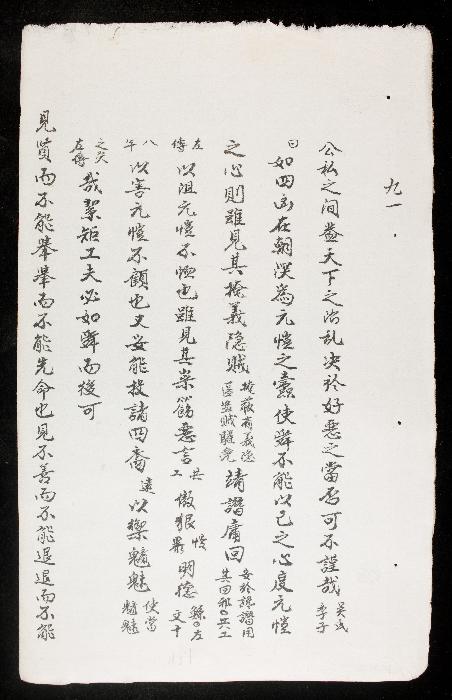 九一
公私之间盖天下之治乱决於好恶之當否可不謹哉 吴氏季子
曰如四凶在朝深為元愷之蠹使舜不能以己之心度元愷
之心則雖見其掩義隐贼 掩蔽有義隐匿盗賊 靖譖庸回 安於譖譖用其回邪〇共工
左傳 以沮元愷不恤也雖見其崇飾惡言 共工 傲狠 明德 鯀〇左文十
八年 以害元愷不顧也又安能投諸四裔 遠 以禦魑魅 使當魑魅
之灾左傳 哉絜矩工夫必如舜而後可
見賢而不能舉舉而不能先命也見不善而不能退退而不能